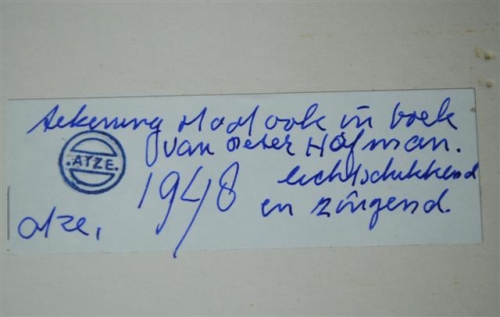 tekening staat ook in boek
van Peter Hofman.
.ATZE.
1948
en zingend.
atze,